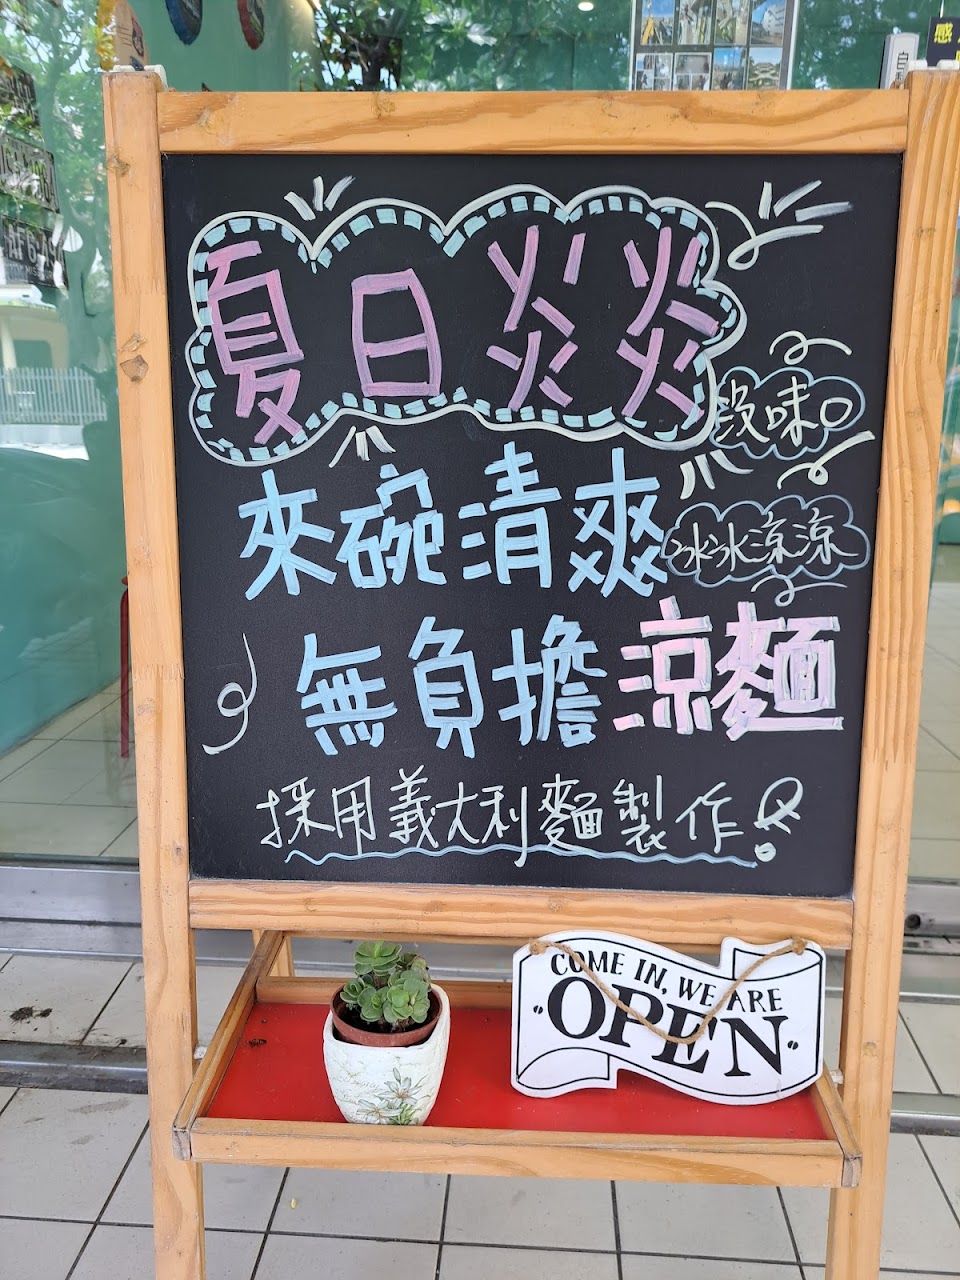 夏日炎炎
沒味口
來碗清爽
冰冰涼涼
無負擔涼麵
採用義大利麵製作!
COME IN, WE ARE
OPEN
感